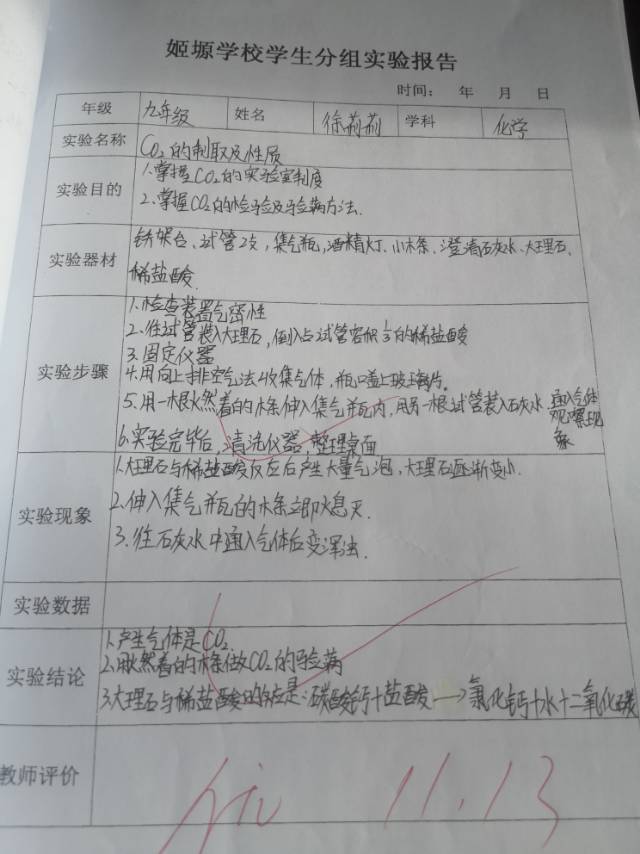 姬塬学校学生分组实验报告
时间： 年 月 日
年级 九年级 姓名 徐莉莉 学科 化学
实验名称 CO2的制取及性质
实验目的 1.掌握CO2的实验室制度
2.掌握CO2的检验及验满方法.
实验器材 铁架台、试管2支，集气瓶，酒精灯、小木条、澄清石灰水、大理石、
稀盐酸.
实验步骤 1.检查装置气密性
2.往试管装入大理石，倒入占试管容积1/3的稀盐酸
3.固定仪器
4.用向上排空气法收集气体，瓶口盖上玻璃片。
5.用一根燃着的木条伸入集气瓶内，用另一根试管装入石灰水，通入气体
观察现
象
6.实验完毕后，清洗仪器，整理桌面
实验现象 1.大理石与稀盐酸反应后产生大量气泡、大理石逐渐变小.
2.伸入集气瓶的木条立即熄灭.
3.往石灰水中通入气体后变浑浊.
实验数据
实验结论 1.产生气体是CO2.
2.用燃着的木条做CO2的验满
3.大理石与稀盐酸的反应是：碳酸钙+盐酸→氯化钙+水+二氧化碳
教师评价 11.13